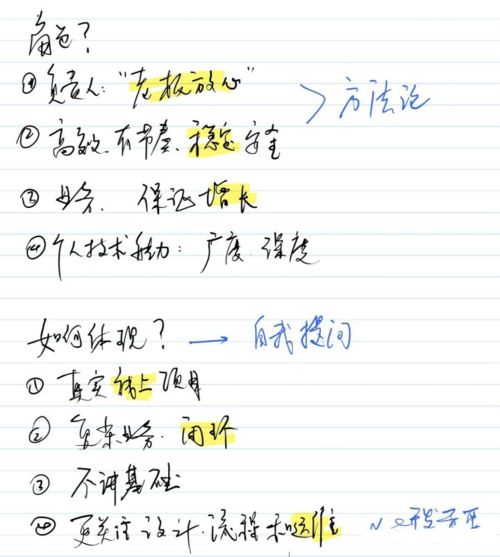 角色？
① 负责人：“老板放心”
> 方法论
② 高效、有节奏、稳定 安全
③ 业务、保证增长
④ 个人技术能力：广度、深度
如何体现？ → 自我提问
① 真实线上项目
② 复杂业务、闭环
③ 不讲基础
④ 更关注设计、流程和运维